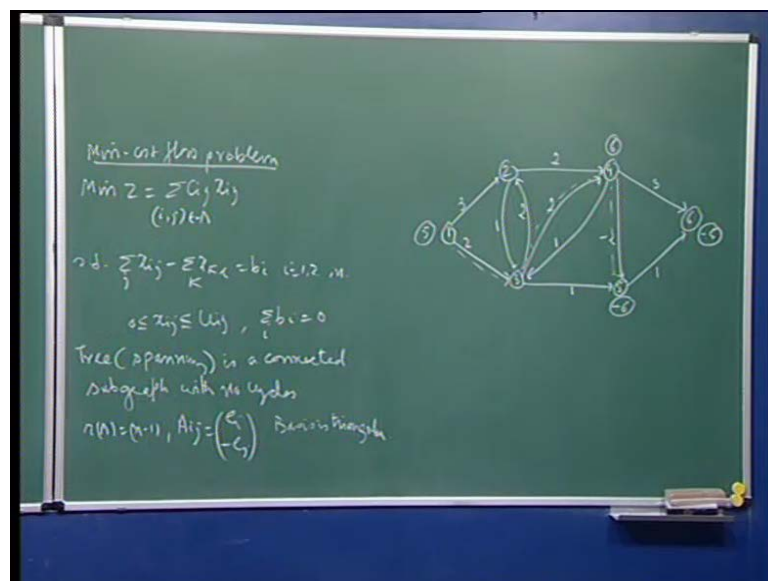 Min-cost flow problem
Min Z = Σ Cij xij
(i,j)∈A
s.t. Σj xij - Σk xki = bi i=1,2..n
0≤xij≤Uij, Σi bi = 0
Tree (spanning) is a connected
subgraph with no cycles
r(A)=(n-1), Aij = (ei -ej) Basis is triangular
6
2 2 4
3 3
1 2 2 1 -2 6 -5
5 1 2
3 1 5 1
-6